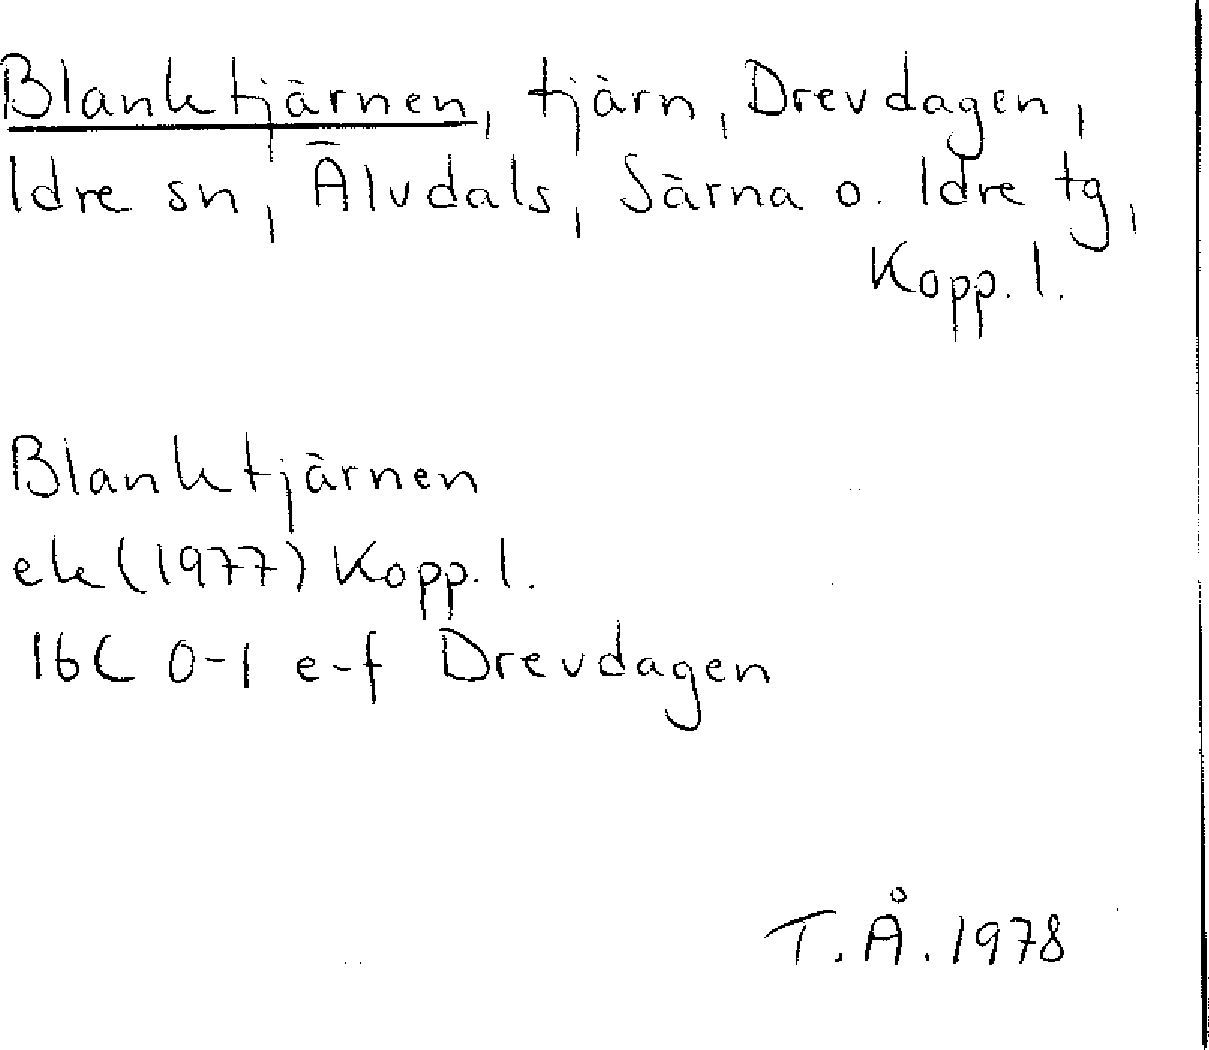 Blanktjärnen, tjärn, Drevdagen,
Idre sn, Älvdals, Särna o. Idre tg,
Kopp. l.
Blanktjärnen
ek (1977) Kopp. l.
16C 0-1 e-f Drevdagen
T.Å. 1978